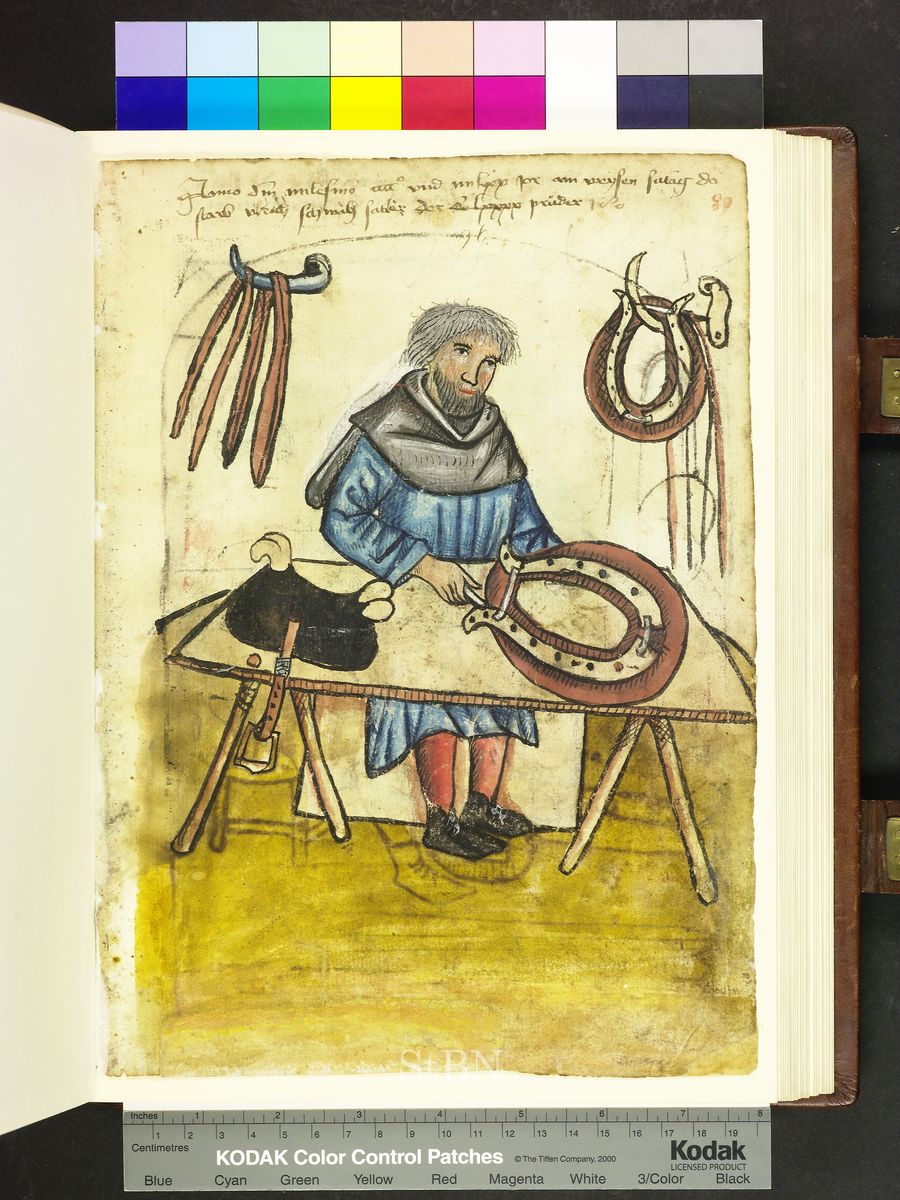 Anno dm milesimo cccc° vnd im lxxx jor am weysen sutag do
starb vlrich schwab satler der lxxxx pruder
89
StBN
Inches 1 2 3 4 5 6 7 8
Centimetres 1 2 3 4 5 6 7 8 9 10 11 12 13 14 15 16 17 18 19
KODAK Color Control Patches © The Tiffen Company, 2000 Kodak
LICENSED PRODUCT
Blue Cyan Green Yellow Red Magenta White 3/Color Black